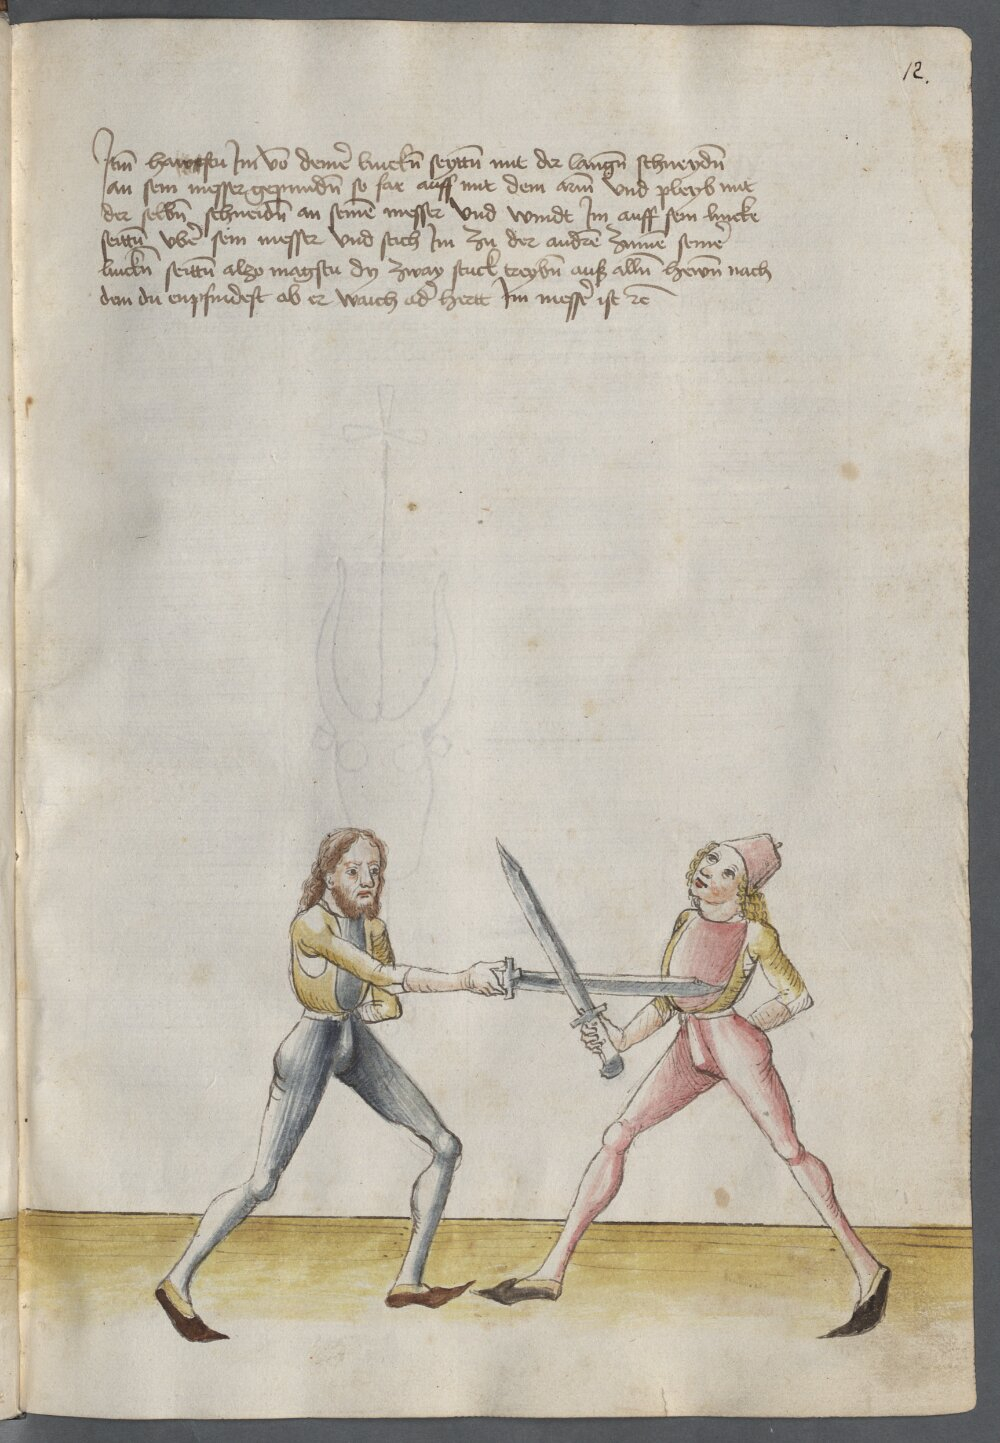 12.
Itm̄ hawstu Im vō deinē linckn̄ seyttn̄ mit der langn̄ schneydn̄
an sein messer gepundn̄ so far auff mit dem arm̄ vnd pleyb mit
der selbn̄ schneidn̄ an seinē messer vnd windt Im auff sein lincke
seittn̄ vbē sein messer vnd stich Im zu der andrē zinne seinē
linckn̄ seittn̄ also magstu dy zway stuck treybn̄ auß alln̄ hewn̄ nach
dem du enpfindest ob er waich adē hertt Im messē ist rē